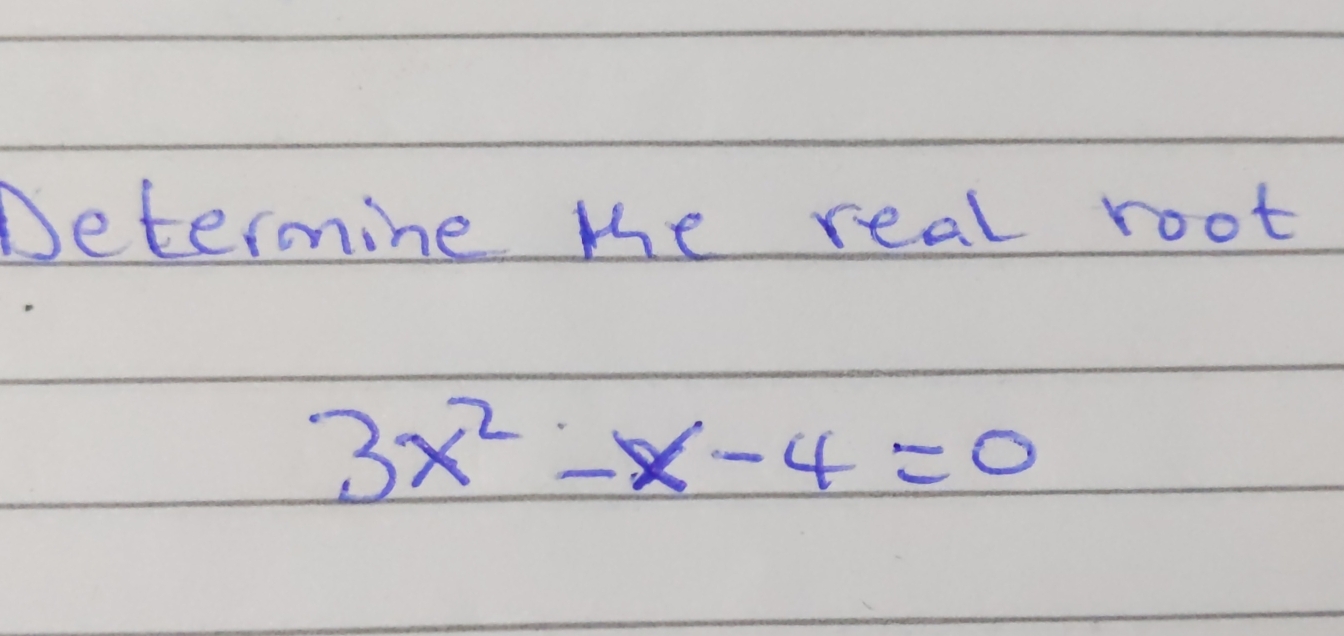 Determine the real root
3x² -x-4=0